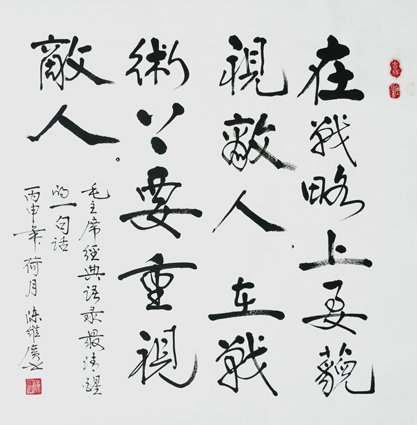 在戰略上要藐
視敵人在戰
術上要重視
敵人。
毛主席經典語录最清醒
的一句话
丙申年荷月